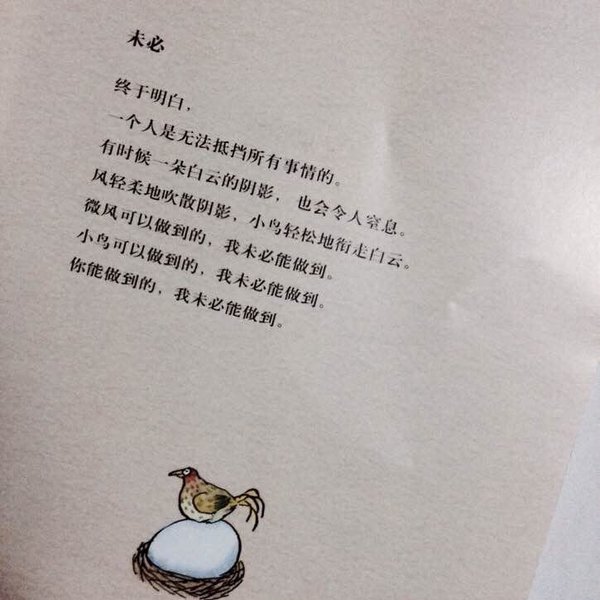 未必
终于明白，
一个人是无法抵挡所有事情的。
有时候一朵白云的阴影，也会令人窒息。
风轻柔地吹散阴影，小鸟轻松地衔走白云。
微风可以做到的，我未必能做到。
小鸟可以做到的，我未必能做到。
你能做到的，我未必能做到。